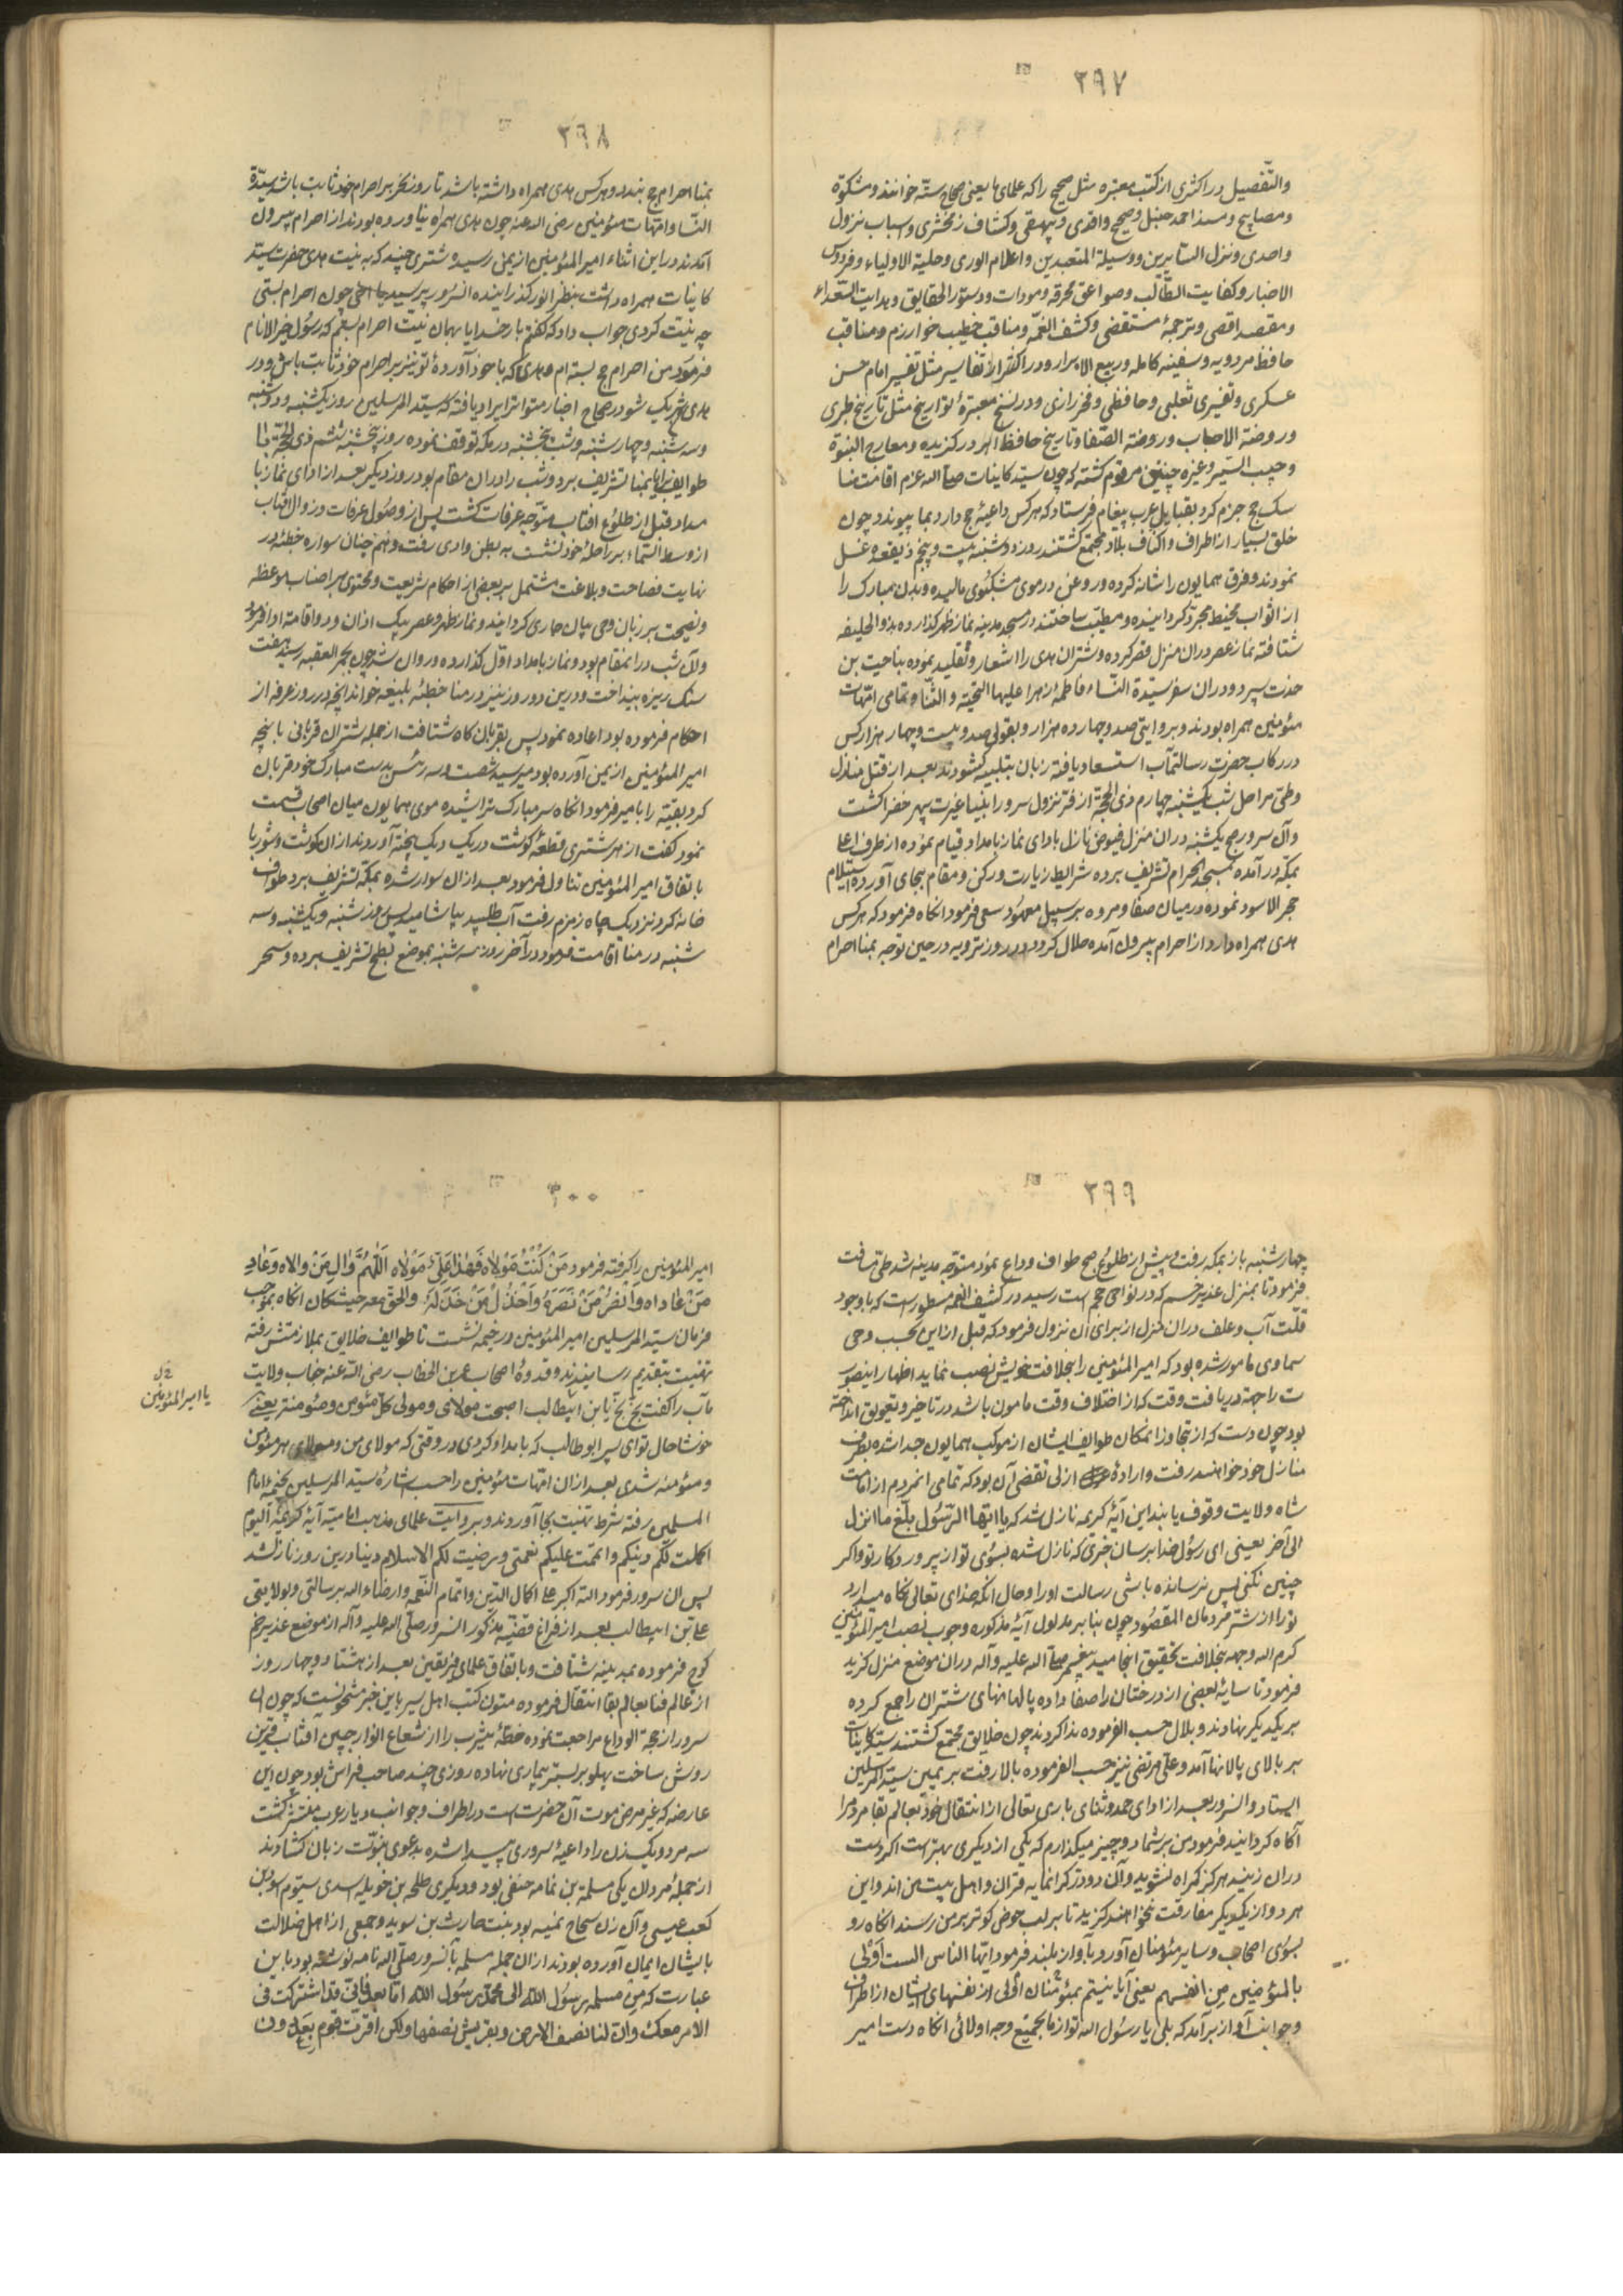 ۲۹۷
والتفصیل در اکثری از کتب معتبره مثل صحیح را که علمای ما یعنی صحاح ستّه خوانند و مشکوة
و مصابیح و مسند احمد حنبل و صحیح واقدی و بیهقی و کشاف زمخشری و اسباب نزول
واحدی و نزل السایرین و وسیلة المتعبدین و اعلام الوری و حلیة الاولیاء و فردوس
الاخبار و کفایت الطالب و صواعق محرقه و مودات و دستور الحقایق و هدایت السعداء
و مقصد اقصی و ترجمهٔ مستقصی و کشف الغمّه و مناقب خطیب خوارزم و مناقب
حافظ مردویه و سفینه کامله و ربیع الابرار و در اکثر از تفاسیر مثل تفسیر امام حسن
عسکری و تفسیری ثعلبی و حافظی و فخر رازی و در نسخ معتبرهٔ تواریخ مثل تاریخ طبری
و روضة الاحباب و روضة الصّفا و تاریخ حافظ ابرو و گزیده و معارج النبوة
و حبیب السّیر و غیره چنین مرقوم کشته که چون سیّد کاینات صلّی الله عزم اقامت منا
سک حج جزم کرد بقبایل عرب پیغام فرستاد که هرکس داعیهٔ حج دارد بما پیوندد چون
خلق بسیار از اطراف و اکناف بلاد مجتمع کشتند روز دوشنبه بیست و پنجم ذیقعده غسل
نمودند و فرق همایون را شانه کرده و روغن در موی مشکبوی مالیده و بدن مبارک را
از اثواب مخیط مجرد کردانیده و مطیّب ساختند در مسجد مدینه نماز ظهر کذارده بذو الحلیفه
شتافته نماز عصر در ان منزل قصر کرده و شتران هدی را اشعار و تقلید نموده بناحیت بن
جندب سپرد و در ان سفر سیّدة النساء فاطمهٔ زهرا علیها التحیّة و الثنا و تمامی امّهات
مؤمنین همراه بودند و بروایتی صد و چهارده هزار و بقولی صد و بیست و چهار هزار کس
در رکاب حضرت رسالتمآب استسعاد یافته زبان بتلبیه کشودند بعد از قتل منازل
وطی مراحل شب یکشنبه چهارم ذی الحجّة از فرّ نزول سرور انبیا غیرت سپهر خضرا کشت
و آن سرور صبح یکشنبه در ان منزل فیوض نازل بادای نماز بامداد قیام نموده از طرف اعلا
بمکّه در آمده بمسجد الحرام تشریف برده شرایط زیارت و رکن و مقام بجای آورده استیلام
حجر الاسود نموده در میان صفا و مروه بر سبیل معهود سعی فرمود انکاه فرمود که هرکس
هدی همراه دارد از احرام بیرون آمده حلال کردد در روز ترویه در حین توجه بمنا احرام
۲۹۸
بمنا احرام حج بندد و هرکس هدی همراه داشته باشد تا روز نحر بر احرام خود ثابت باشد سیّدة
النسا و امّهات مؤمنین رضی الله عنه چون هدی همراه نیاورده بودند از احرام بیرون
آمدند در این اثناء امیر المؤمنین از یمن رسید و شتری چند که به نیت هدی حضرت سیّد
کاینات همراه داشت بنظر انور کذرانیده آن سرور پرسید یا اخی چون احرام بستی
چه نیّت کردی جواب داد که گفتم بار خدایا بهمان نیّت احرام بستم که رسول خیر الانام
فرمود من احرام حج بسته ام و هدی که با خود آورده تو نیز بر احرام خود ثابت باش و در
هدی شریک شو در صحاح اخبار متواتر ایراد یافته که سیّد المرسلین روز یکشنبه و دوشنبه
و سه شنبه و چهارشنبه و شب پنجشنبه در مکه توقف نموده روز پنجشنبه هشتم ذی الحجّة با
طوایف برایا بمنا تشریف برد و شب را در ان مقام بود روز دیکر بعد از ادای نماز با
مداد قبل از طلوع افتاب متوّجه عرفات کشت پس از وصول عرفات و زوال افتاب
از وسط السّماء بر راحلهٔ خود نشست به بطن وادی رفت و هم چنان سواره خطبهٔ در
نهایت فصاحت و بلاغت مشتمل بر بعضی از احکام شریعت و محتوی بر اصناب موعظه
و نصیحت بر زبان وحی بیان جاری کردانید و نماز ظهر و عصر بیک اذان و دو اقامة ادا فرمود
و آن شب در انمقام بود و نماز بامداد اوّل کذارده روان شد چون بجمر العقبه رسید هفت
سنک ریزه بینداخت و در ین دو روز نیز در منا خطبهٔ بلیغه خواند انچه در روز عرفه از
احکام فرموده بود اعاده نمود پس بقربان کاه شتافت از جمله شتران قربانی با نچه
امیر المؤمنین از یمن آورده بود میرسید شصت و سه راس بدست مبارک خود قربان
کرد بقیّه را بامیر فرمود انکاه سر مبارک تراشیده موی همایون میان اصحاب قسمت
نمود کفت از هر شتری قطعهٔ کوشت در یک دیک پخته آوردند از ان کوشت و شوربا
با تفاق امیر المؤمنین تناول فرمود بعد از ان سوار شده بمکّه تشریف برد طواف
خانه کرد نزدیک چاه زمزم رفت آب طلبید بیاشامید پس روز شنبه و یکشنبه و سه
شنبه در منا اقامت فرمود در آخر روز سه شنبه بموضع بطح تشریف برده و سحر
۲۹۹
چهارشنبه باز بمکه رفت و پیش از طلوع صبح طواف وداع نمود متوجه مدینه شد طی مسافت
فرمود تا بمنزل غدیر خم که در نواحی جحفه است رسید در کشف الغمه مسطور است که با وجود
قلّت آب و علف در ان منزل از برای آن نزول فرمود که قبل از این بحسب وحی
سماوی مامور شده بود که امیر المؤمنین را بخلافت خویش نصب نماید اظهار اینصور
ت را جهة در یافت وقت که از اختلاف وقت مامون باشد در تاخیر و تعویق انداخته
بود چون دست که از تجاوز انمکان طوایف ایشان از موکب همایون جدا شده بطرف
منازل خود خواهند رفت و ارادهٔ ازلی مقتضی آن بود که تمامی انمردم از امامت
شاه ولایت وقوف یابند این آیهٔ کریمه نازل شد که یا ایّها الرّسول بلّغ ما انزل
الی آخر یعنی ای رسول خدا برسان چیزی که نازل شده بسوی تو از پروردکار تو و اکر
چنین نکنی پس نرسانده باشی رسالت او را و حال انکه خدای تعالی نکاه میدارد
تو را از شر مردمان المقصود چون بنا بر مدلول آیهٔ مذکوره وجوب نصب امیر المؤمنین
کرم الله وجهه بخلافت بتحقیق انجامید پیغمبر صلّی الله علیه وآله در ان موضع منزل کزید
فرمود تا سایهٔ بعضی از درختان را صفا داده پالانهای شتران را جمع کرده
بر یکدیکر نهادند و بلال حسب الفرموده ندا کردند چون خلایق مجتمع کشتند سیّد کاینات
بر بالای پالانها آمد و علی مرتضی نیز حسب الفرموده بالا رفت بر یمین سیّد المرسلین
ایستاد و ان سرور بعد از ادای حمد و ثنای باری تعالی از انتقال خود بعالم بقا مردم را
آکاه کردانید فرمود من بر شما دو چیز میکذارم که یکی از دیکری بهتر است اکر دست
در ان زنید هرکز کمراه نشوید و آن دو در کرانمایه قران و اهل بیت من اند و این
هر دو از یکدیکر مفارقت نخواهند کزید تا بر لب حوض کوثر بر من رسند انکاه رو
بسوی اصحاب و سایر مؤمنان آورد بآواز بلند فرمود ایّها الناس الست اَولٰی
بالمؤمنین مِن انفسهم یعنی آیا نیستم بمؤمنان اولی از نفسهای ایشان از اطراف
و جوانب آواز بر آمد که بلی یا رسول الله تو از ما بجمیع وجه اولائی انکاه دست امیر
۳۰۰
امیر المؤمنین را کرفته فرمود مَنْ کُنْتُ مَوْلاهُ فَهٰذا عَلیٌّ مَوْلاه اَللّٰهُمَّ وٰالِ مَنْ والاه وَعٰادِ
مَنْ عاداه وَانْصُرْ مَنْ نَصَرَهُ وَاَخْذُلْ مَنْ خَذَلَهُ والحقّ معه حیث کان انکاه بموجب
فرمان سیّد المرسلین امیر المؤمنین در خیمه نشست تا طوایف خلایق بملازمتش رفته
تهنیت بتقدیم رسانیدند و قدوهٔ اصحاب عمر بن الخطاب رضی الله عنه جناب ولایت
مآب را کفت بخّ بخّ یا بن ابیطالب اصبحت مولای و مولی کل مؤمن و مؤمنة یعنی
خوشا حال تو ای پسر ابو طالب که بامداد کردی در وقتی که مولای من و مولای هر مؤمن
و مؤمنه شدی بعد از ان امّهات مؤمنین را حسب اشارهٔ سیّد المرسلین بخیمهٔ امام
المسلمین رفته شرط تهنیت بجا آوردند و بروایت علمای مذهب امامیّه آیهٔ کریمهٔ الیوم
اکملت لکم دینکم و اتممت علیکم نعمتی و رضیت لکم الاسلام دینا درین روز نازل شد
پس ان سرور فرمود الله اکبر علی اکمال الدین و اتمام النّعمه و ارضاء الله برسالتی و بولایتی
علی بن ابیطالب بعد از فراغ قضیّهٔ مذکور السرور صلّی الله علیه وآله از موضع غدیر خم
کوچ فرموده بمدینه شتافت و باتفاق علمای فریقین بعد از هشتاد و چهار روز
از عالم فنا بعالم بقا انتقال فرموده متون کتب اهل سیر باین خبر مشحونست که چون ان
سرور از حجة الوداع مراجعت نموده خطهٔ یثرب را از شعاع انوار جبین افتاب قرین
روشن ساخت پهلو بر بستر بیماری نهاده روزی چند صاحب فراش بود چون این
عارضه که غیر مرض موت آن حضرت است در اطراف و جوانب دیار عرب منتشر کشت
سه مرد و یک زن را داعیهٔ سروری پیدا شده بدعوی نبوّت زبان کشادند
از جملهٔ مردان یکی مسلمة بن ثمامه حنفی بود و دیکری طلحه بن خویلد اسدی سیّوم اسود بن
کعب عیسی و آن زن سجاح تمنیه بود بنت حارث بن سوید و جمعی از اهل ضلالت
بایشان ایمان آورده بودند از ان جمله مسلمه بآنسرور صلّی الله نامه نوشته بود باین
عبارت که مِن مسلمه رسُول اللّٰه الی محمّد رسُول اللّٰه امّا بعد فانّی قد اشترکت فی
الامر معک و ان لنا نصف الارض و بقریش نصفها ولکن اقریت قوم یعتدون
یا امیر المؤمنین